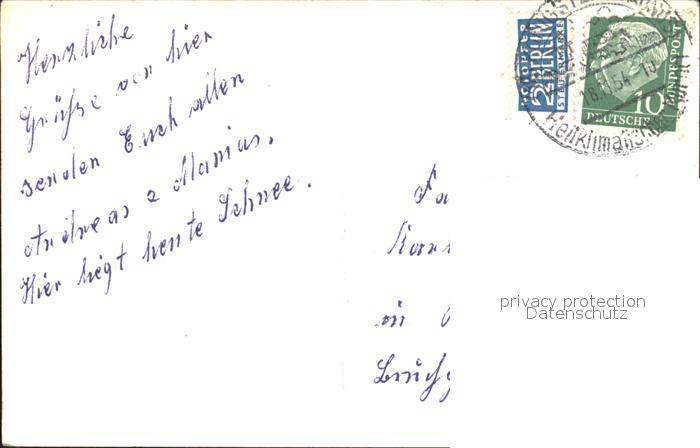 Herzliche
Grüße von hier
senden Euch allen
Andreas & Marius.
Hier liegt heute Schnee.
Fa
in
NOTOPFER
2 BERLIN
STEUERMARKE
DEUTSCHE
BUNDESPOST
10
54
Heilklimatisch
privacy protection
Datenschutz